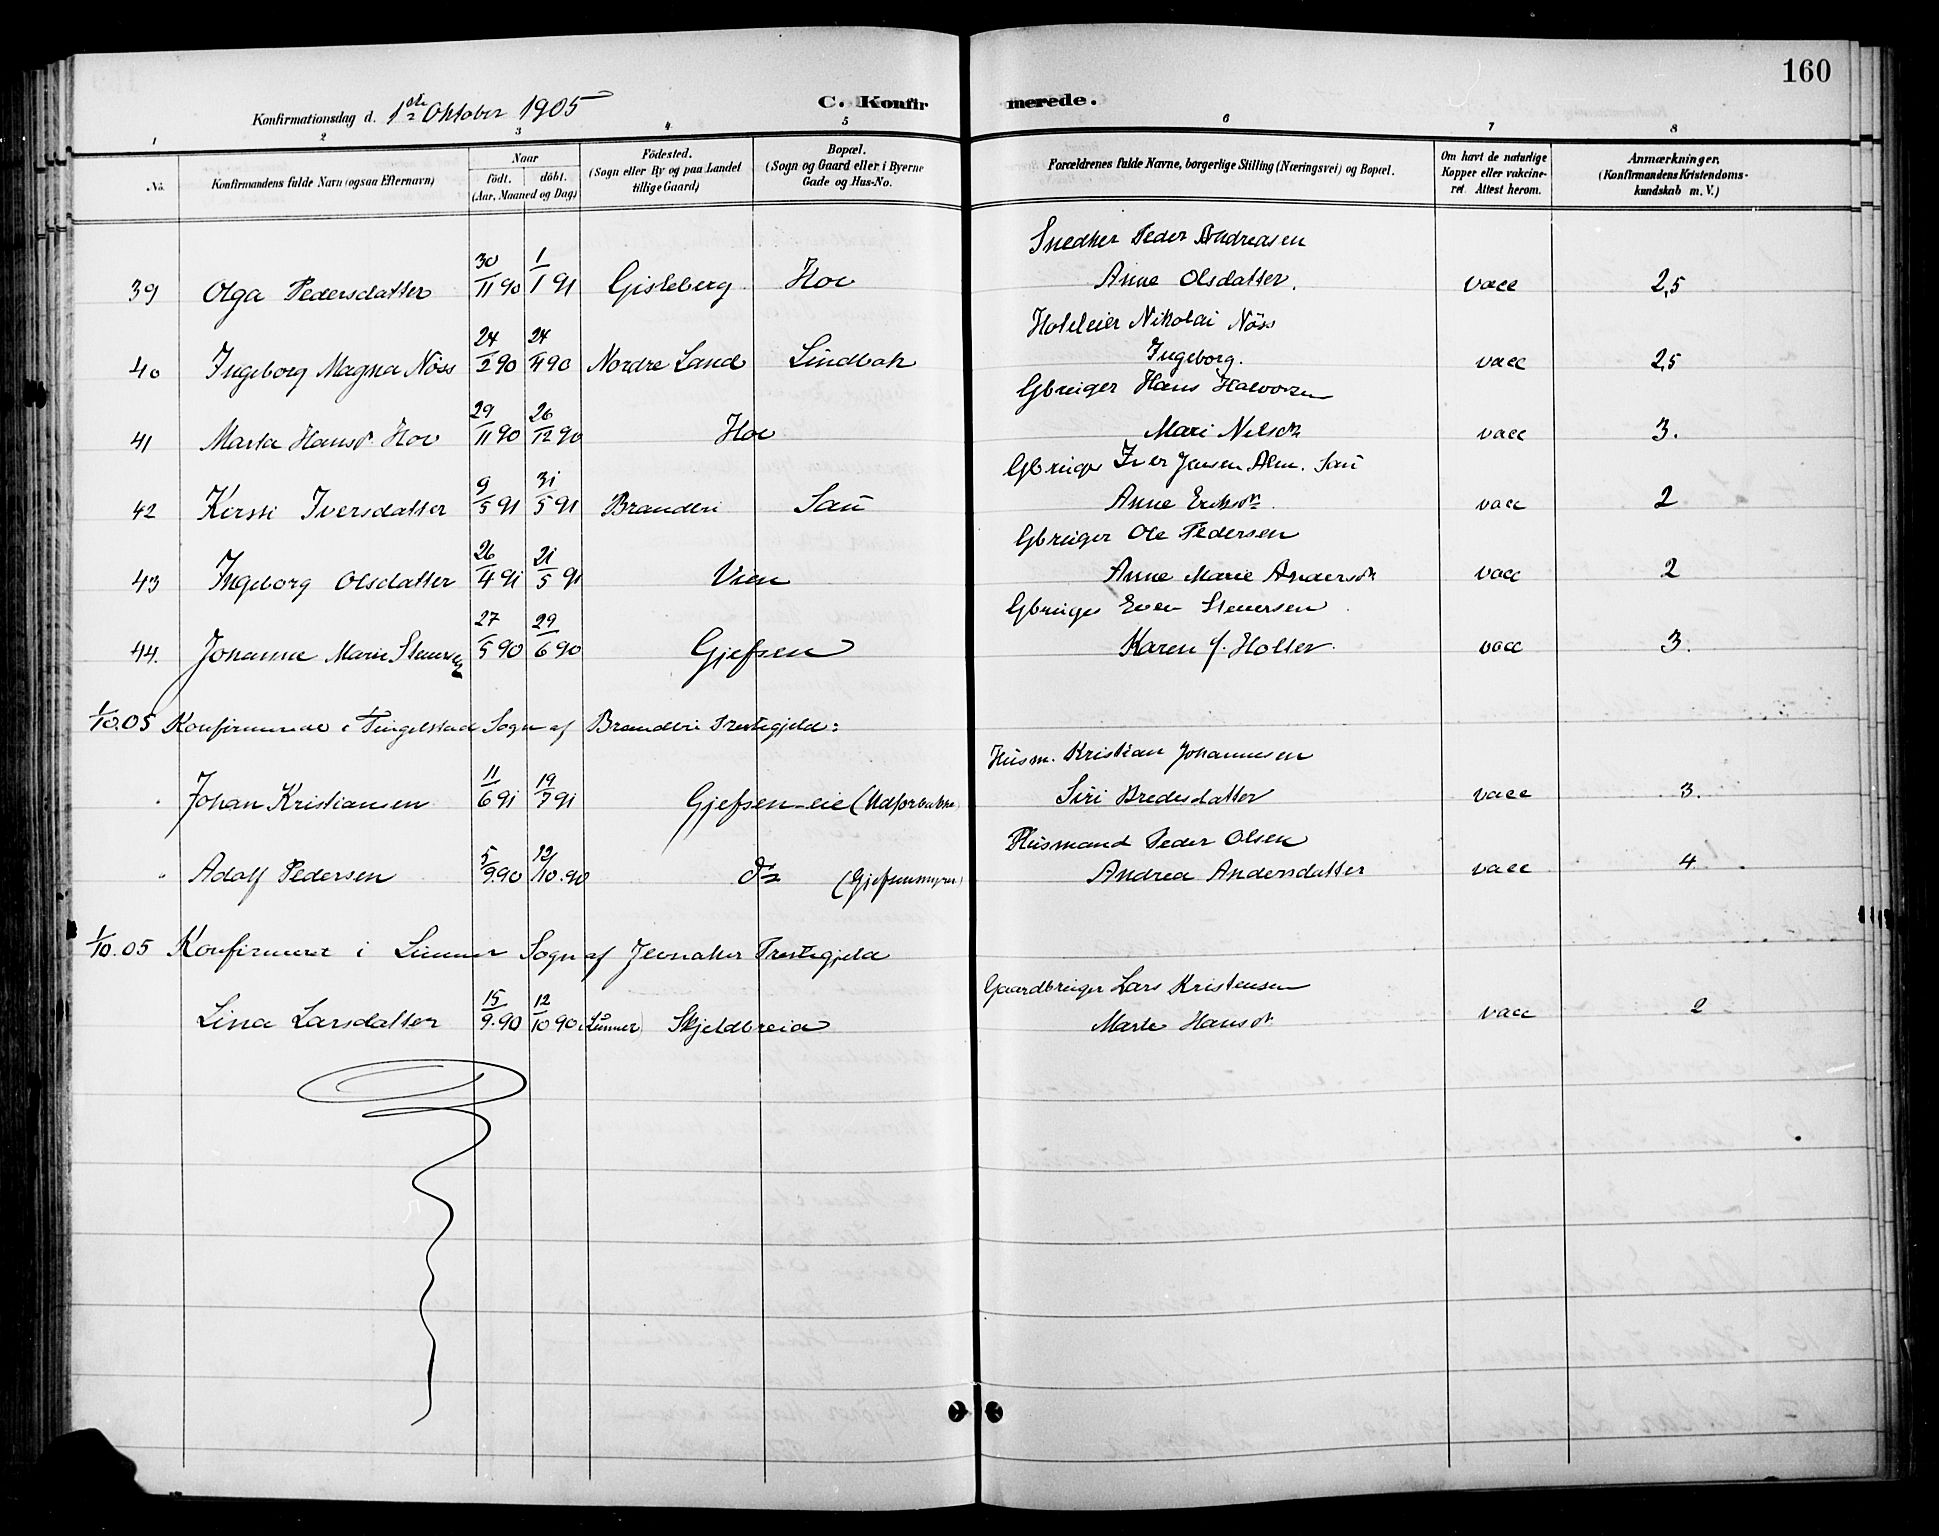 160
Konfirmationsdag d. 1ste Oktober 1905 C. Konfirmerede.
1 2 3 4 5 6 7 8
No. Konfirmandens fulde Navn (ogsaa Efternavn) Naar födt. döbt. (Aar, Maaned og Dag) Födested. (Sogn eller By og paa Landet tillige Gaard) Bopæl. (Sogn og Gaard eller i Byerne Gade og Hus-No. Forældrenes fulde Navne, borgerlige Stilling (Næringsvei) og Bopæl. Om havt de naturlige Kopper eller vakcineret. Attest herom. Anmærkninger. (Konfirmandens Kristendomskundskab m. V.)
Snedker Peder Andreasen
39 Olga Pedersdatter 30/11 90 1/1 91 Gisleberg Hov Anne Olsdatter. vacc 2,5
Hoteleier Nikolai Nöss
40 Ingeborg Magna Nöss 24/2 90 24/4 90 Nordre Land Lindbak Ingeborg. vacc 2,5
Gbruger Hans Halvorsen
41 Marta Hansdr. Hov 29/11 90 26/12 90 Hov Mari Nilsdr vacc 3.
Gbruger Iver Jensen Alm. Sau
42 Kersti Iversdatter 9/5 91 31/5 91 Brandbu Sau Anne Eriksdr vacc 2
Gbruger Ole Pedersen
43 Ingeborg Olsdatter 26/4 91 21/5 91 Vien Anne Marie Andersdr vacc 2
Gbruger Even Stensen
44. Johanne Marie 27/5 90 29/6 90 Gjefsen Karen J. Holter. vacc 3.
1/10.05 Konfirmerede i Tingelstad Sogn af Brandbu Prestegjeld:
Husm. Kristian Johannesen
" Johan Kristiansen 11/6 91 19/7 91 Gjefsen-eie Siri Bredesdatter vacc 3.
Husmand Peder Olsen
" Adolf Pedersen 5/9.90 12/10.90 Do (Gjefsenmyren) Andrea Andersdatter vacc 4
1/10.05 Konfirmeret i Lunner Sogn af Jevnaker Prestegjeld
Gaardbruger Lars Kristensen
Lina Larsdatter 15/9.90 12/10 90 (Lunner) Skjeldbreid Marte Hansdr vacc 2